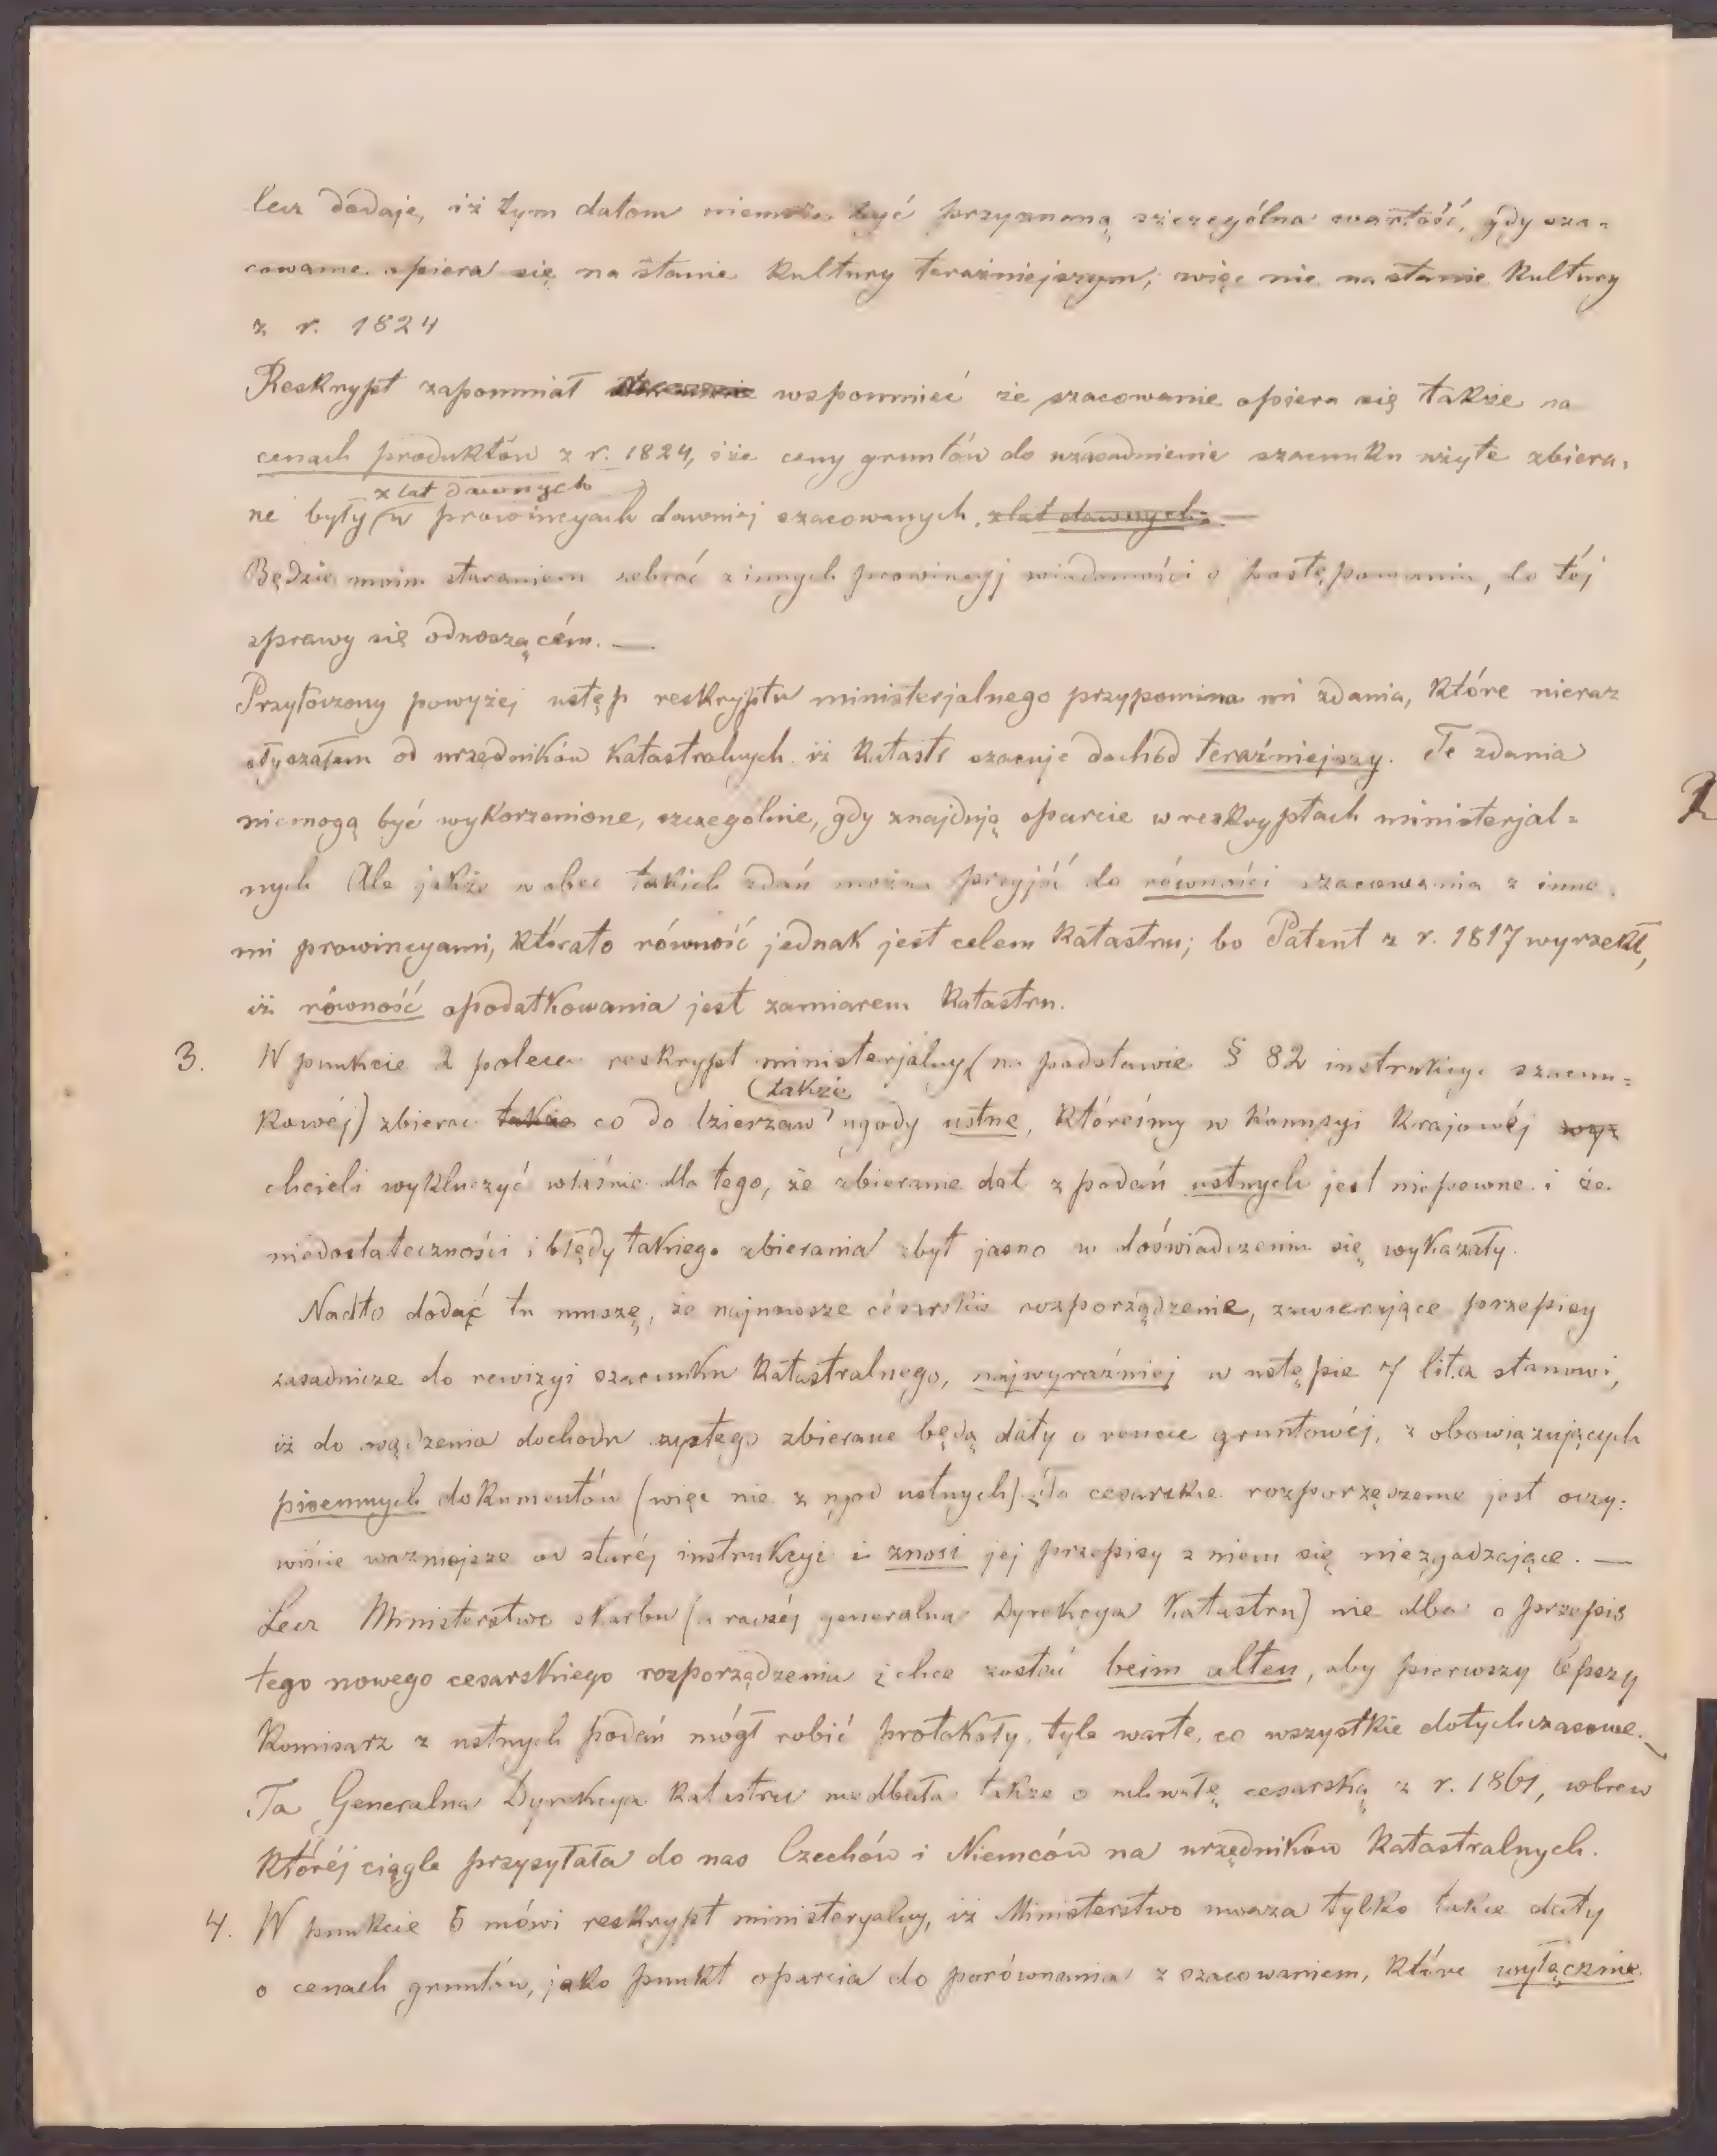 lecz dodaje, iż tym datom niemoże być przyznaną szczególna wartość, gdy sza-
cowanie opiera się na stanie kultury teraźniejszym; więc nie na stanie kultury
z r. 1824
Reskrypt zapomniał wspomnieć że szacowanie opiera się także na
cenach produktów z r. 1824, i że ceny gruntów do uzasadnienia szacunku użyte zbiera-
z lat dawnych
ne były w prowincyach dawniej szacowanych. z lat dawnych. —
Będzie moim staraniem zebrać z innych prowincyj wiadomości o postępowaniu, do téj
sprawy się odnoszącém. —
Przytoczony powyżej ustęp reskryptu ministerjalnego przypomina mi zdania, które nieraz
słyszałem od urzędników katastralnych iż Katastr szacuje dochód teraźniejszy. Te zdania
niemogą być wykorzenione, szczególnie, gdy znajdują oparcie w reskryptach ministerjal=
nych Ale jakże wobec takich zdań można przyjść do równości szacowania z inne-
mi prowincyami, którato równość jednak jest celem Katastru; bo Patent z r. 1817 wyrzekł,
iż równość opodatkowania jest zamiarem Katastru.
3. W punkcie 2 poleca reskrypt ministerjalny (na podstawie § 82 instrukcyi szacun=
(także
kowéj) zbierać także co do dzierżaw ugody ustne, któreśmy w Komisyi Krajowéj wyz
chcieli wykluczyć właśnie dla tego, że zbieranie dat z podań ustnych jest niepewne i że
niedostateczności i błędy takiego zbierania zbyt jasno w doświadczeniu się wykazały.
Nadto dodać tu muszę, że najnowsze césarskie rozporządzenie, zawierające przepisy
zasadnicze do rewizyi szacunku Katastralnego, najwyraźniej w ustępie 7 lit. a stanowi,
iż do osądzenia dochodu czystego zbierane będą daty o rencie gruntowéj, z obowiązujących
pisemnych dokumentów (więc nie z ugod ustnych). To cesarskie rozporządzenie jest oczy=
wiście ważniejsze od staréj instrukcyi i znosi jej przepisy z niem się niezgadzające. —
Lecz Ministerstwo skarbu (a raczéj generalna Dyrekcya Katastru) nie dba o przepis
tego nowego cesarskiego rozporządzenia i chce zostać beim alten, aby pierwszy lépszy
Komisarz z ustnych podań mógł robić protokoły, tyle warte, co wszystkie dotychczasowe.
Ta Generalna Dyrekcya Katastru niedbała także o uchwałę cesarską z r. 1861, wbrew
któréj ciągle przysyłała do nas Czechów i Niemców na urzędników Katastralnych.
4. W punkcie 5 mówi reskrypt ministeryalny, iż Ministerstwo uważa tylko takie daty
o cenach gruntów, jako punkt oparcia do porównania z szacowaniem, które wyłącznie